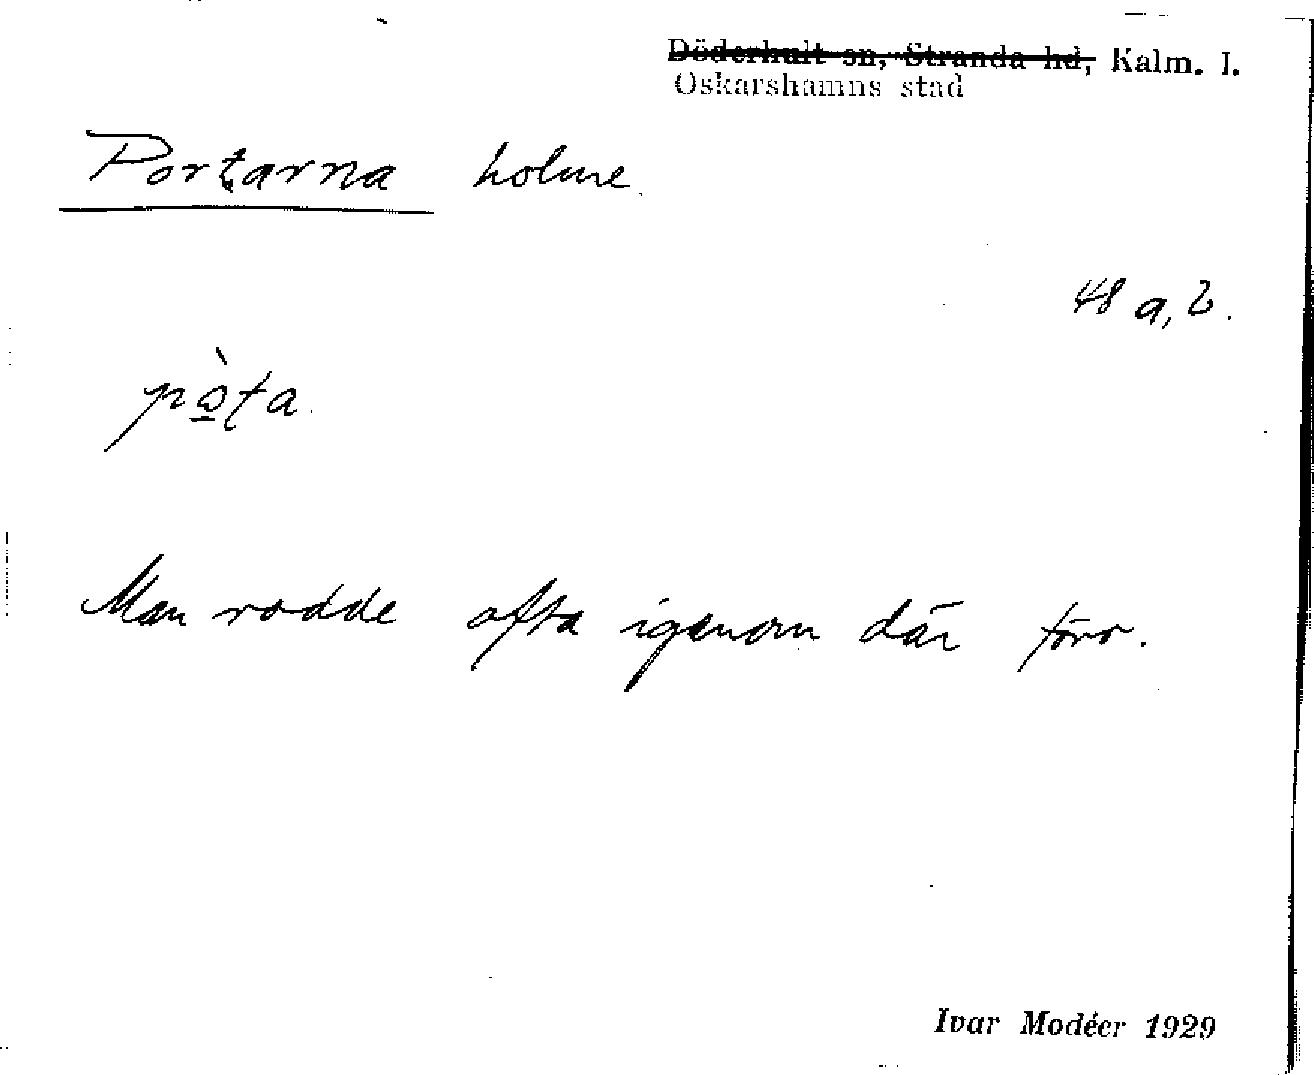 Döderhult sn, Stranda hd, Kalm. l.
Oskarshamns stad
Portarna holme.
48 a, b.
pò̱ta.
Man rodde ofta igenom där förr.
Ivar Modéer 1929